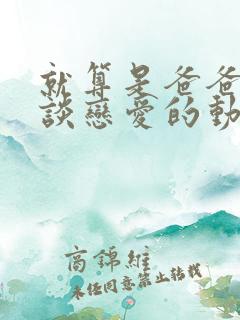 就算是爸爸
談戀愛的動
商錦維
未經同意禁止轉載